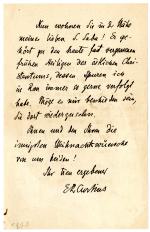 Nun wohnen Sie in der Nähe
meines lieben S. Saba! Es ge-
hört zu den heute fast vergessenen
frühen Heiligen des östlichen Chri-
stentums, dessen Spuren ich
in Rom immer so gerne verfolgt
habe. Möge es mir beschieden sein,
Sie dort wiederzusehen.
Ihnen und den Ihren die
innigsten Weihnachtswünsche
von uns beiden!
Ihr treu ergebener
ERCurtius